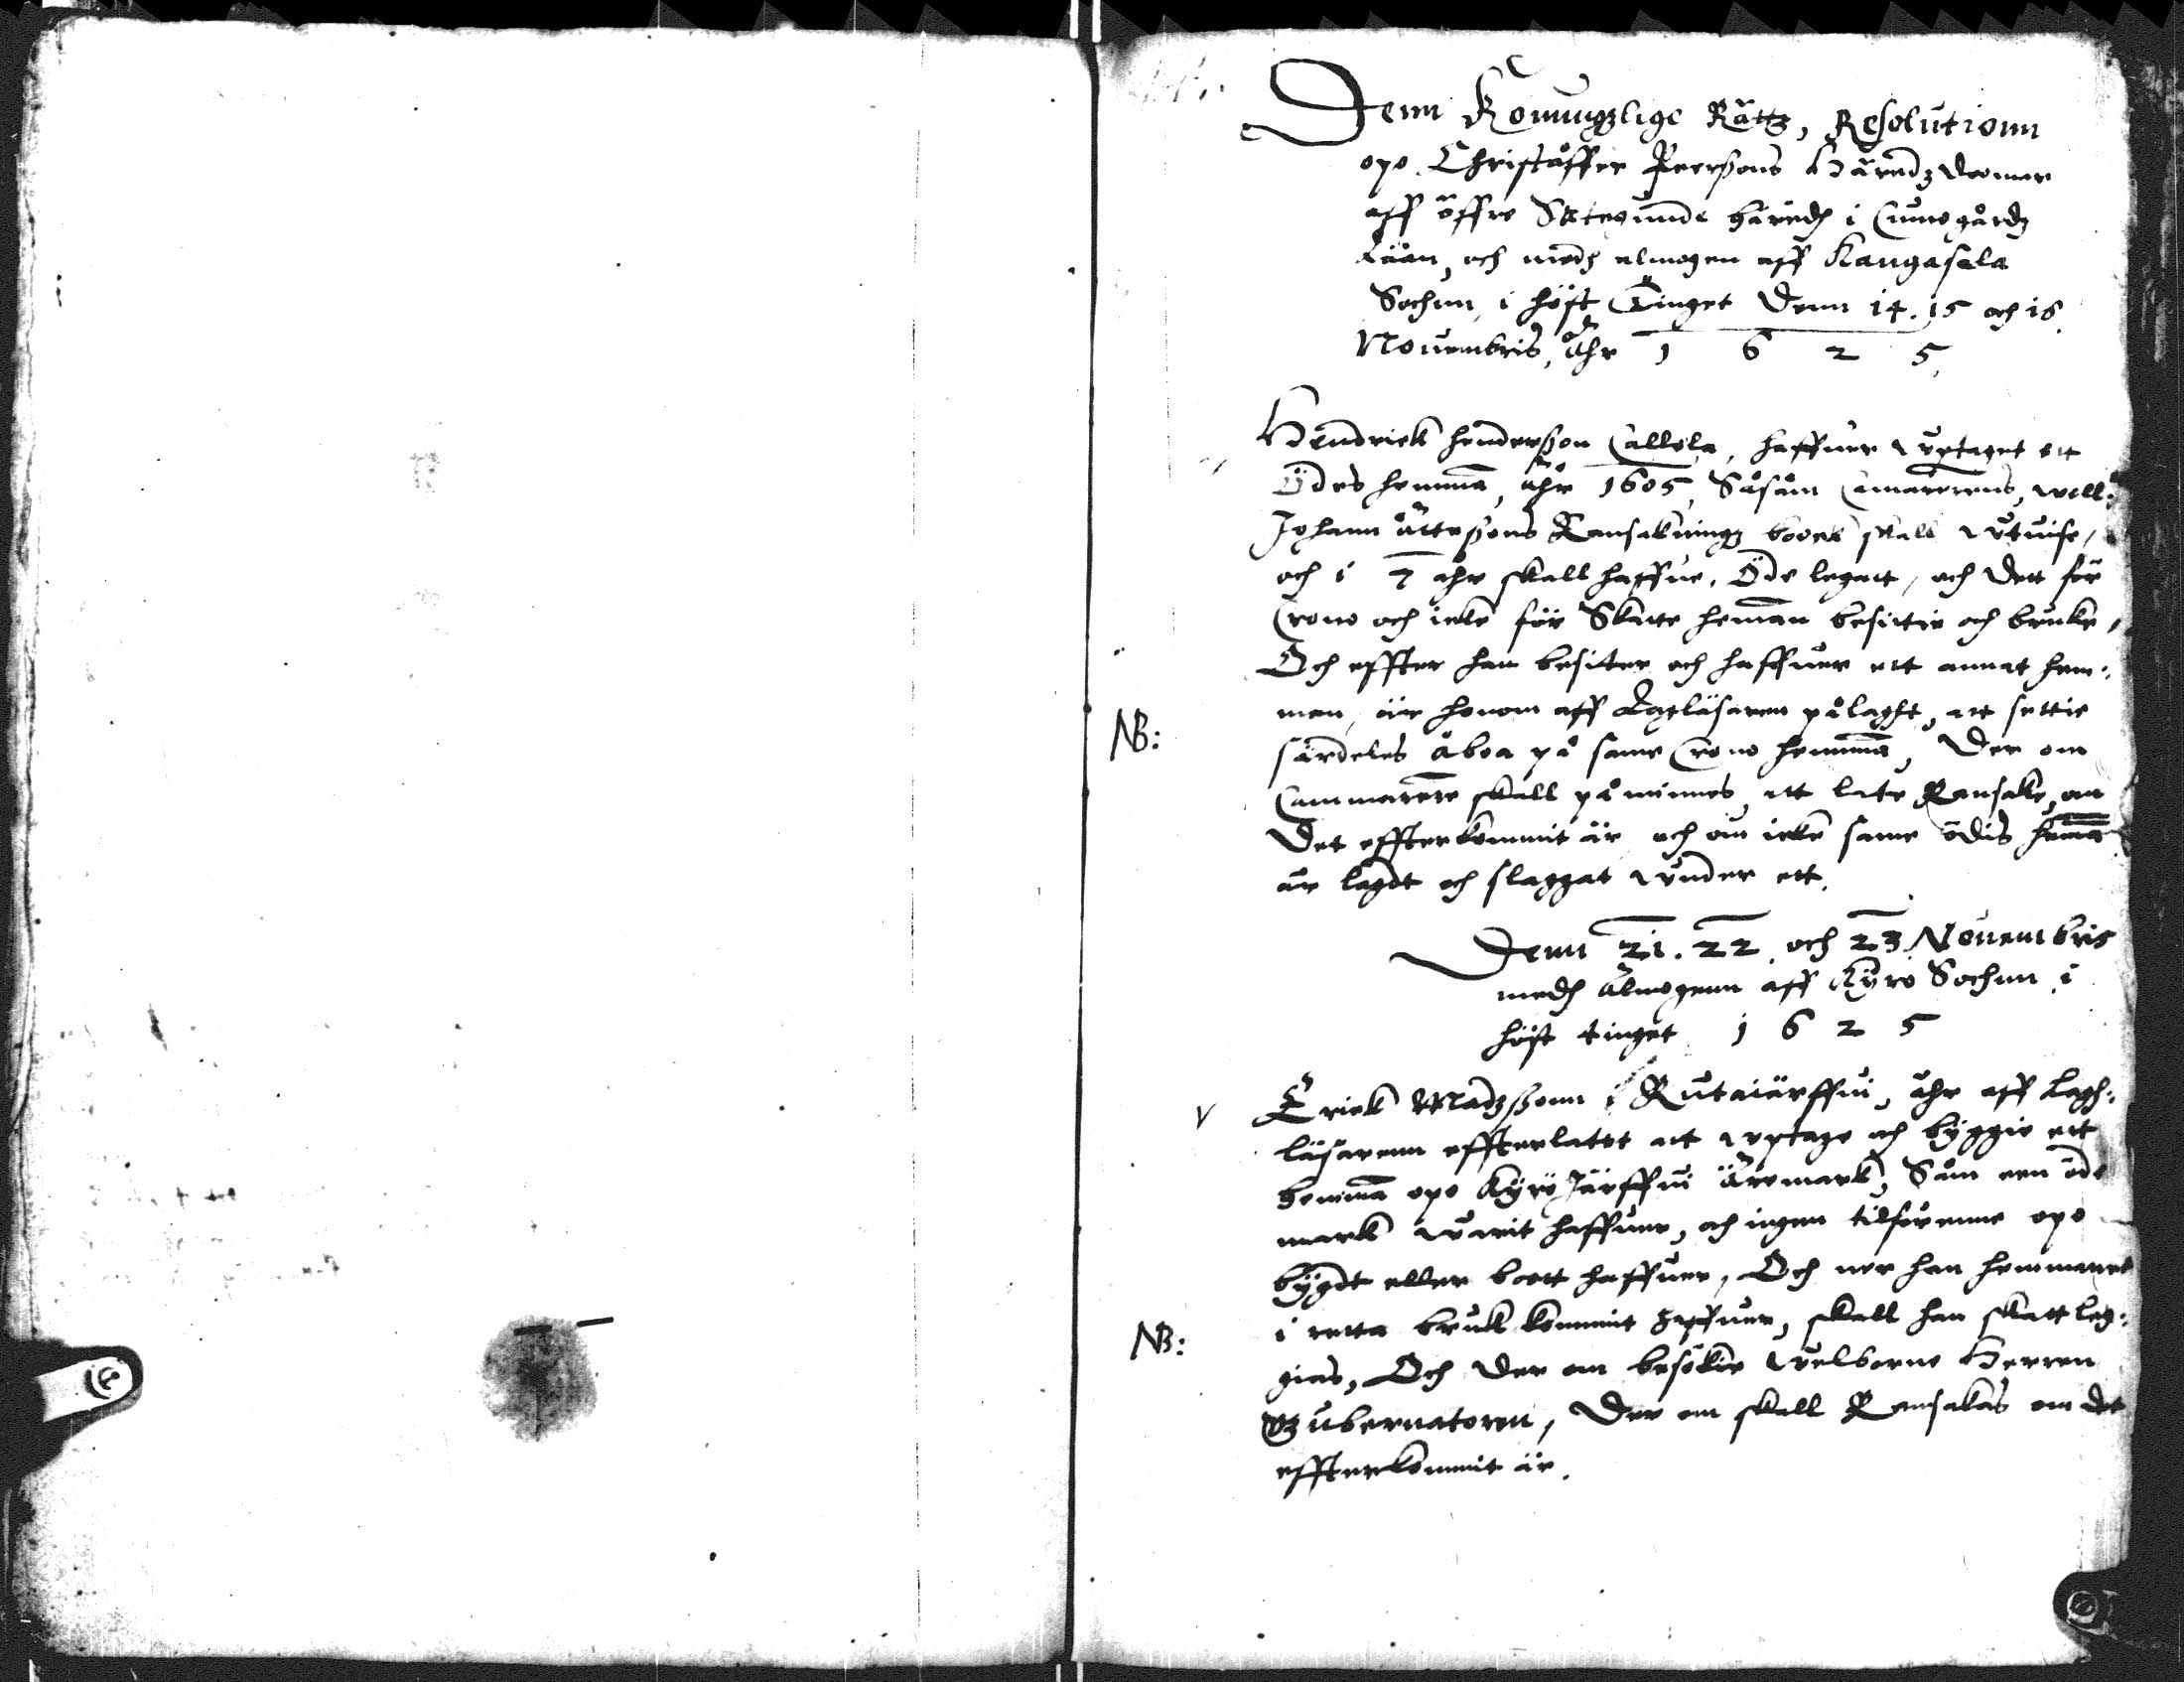 Denn Konungzlige Rättz, Resolutionn
opo Christåffer Peerßons Häredz Deomar
aff öffre Sategunde häredh i Cumogårdz
Lään, och medh almogen aff Kangasala
Sochnn, i höst Tinget Denn 14. 15 och 16
Nouembris, åhr 1 6 2 5,
Hendrick henderßon Callola, haffuer uptaget ett
Ödes hemmā, åhr 1605, Såsåm Camererens, well:
Johann Åtteßons Ransakningz boock skall utuise,
och i 7 åhr skall haffue, Öde legatt, och dett för
Crono och icke för Skatte hemān besittie och bruke,
Och effter han besitter och haffuer ett annat hem:
man, är honom aff Laghläsaren pålaght, att settie
NB: särdeles åboa på same Crono hemmā, Der om
Cammarere skall påminnes, att late Ransake, om
Det effterkommit är och om icke same ödis hemā
är lagdt och slaggat under ett,
Denn 21. 22. och 23 Nouembris
medh Almogenn aff Kyro Sochnn i
höst tinget 1 6 2 5
Erick Madzßonn i Rutaiärffui, ähr aff Lagh:
läsarenn effterlatet att uptage och byggie ett
hemmā opo Kyröjärffui Äremark, Såm een öde
mark warit haffuer, och ingen tilförenne opo
bygdt eller boett haffuer, Och ner han hemmanet
NB: i retta bruk kommit haffuer, skall han skatt leg:
gias, Och der om besökie Welborne Herren
Gubernatoren, Der om skall Ransakas om det
effterkommit är.